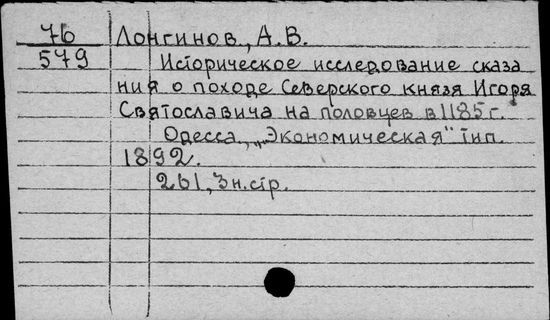 76 Лонгинов, А.В.
579 Историческое исследование сказа
ния о походе Северского князя Игоря
Святославича на половцев в 1185 г.
Одесса, „Экономическая" тип.
1892.
261, 3 н.стр.